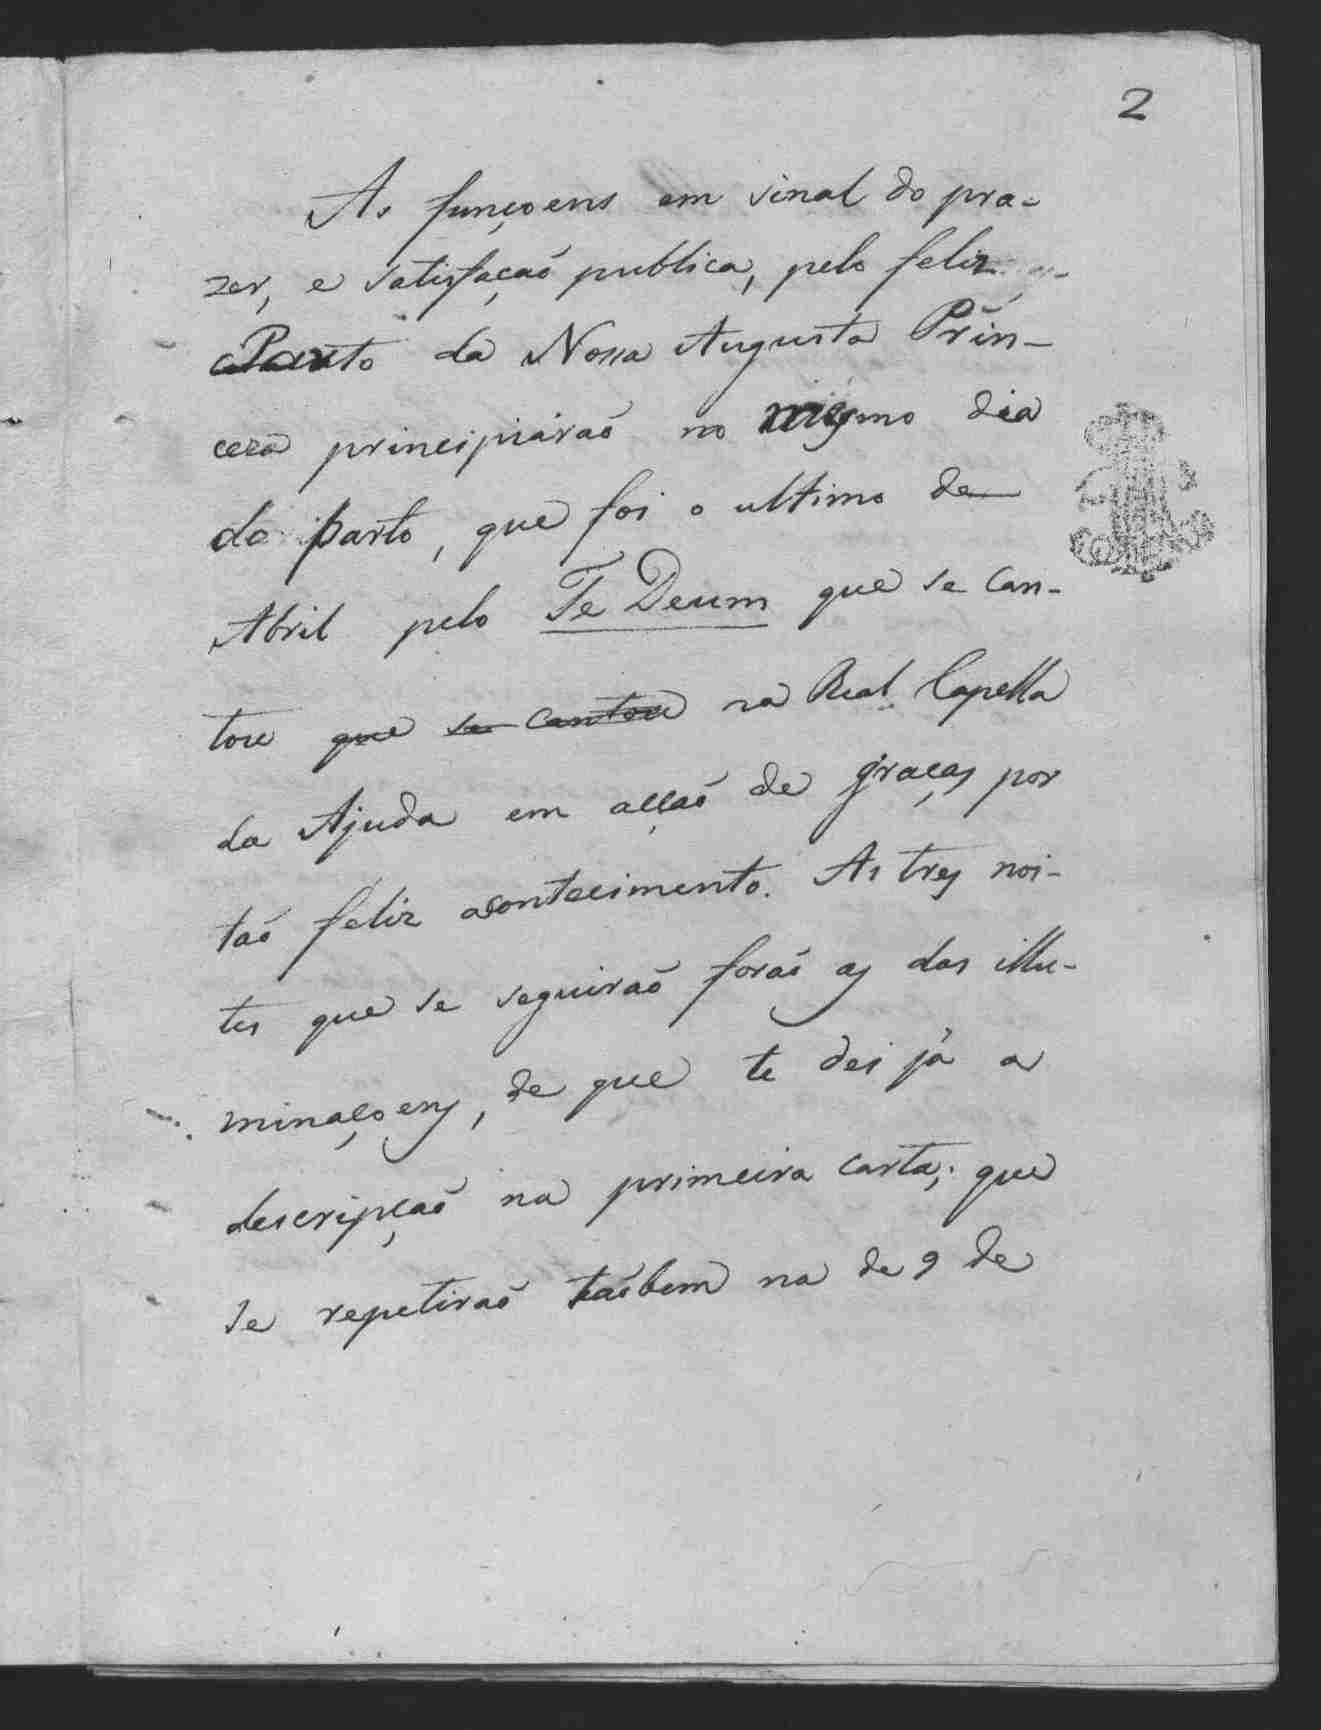 2
As funçoens em sinal do pra-
zer, e satisfaçaõ publica, pelo feliz
Parto da Nossa Augusta Prin-
ceza principiáraõ no mesmo dia
do parto, que foi o ultimo de
Abril pelo Te Deum que se can-
tou que se cantou na Real Capella
da Ajuda em acçaõ de graças por
taõ feliz acontecimento. As tres noi-
tes que se seguiraõ foraõ as das illu-
minaçoens, de que te dei já a
descripçaõ na primeira carta; que
se repetiraõ taõbem na de 9 de